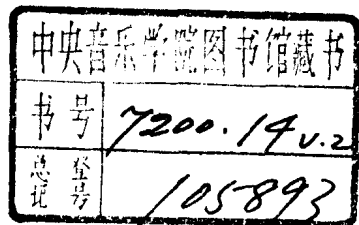 中央音乐学院图书馆藏书
书号 7200.14 v.2
总登记号 105893